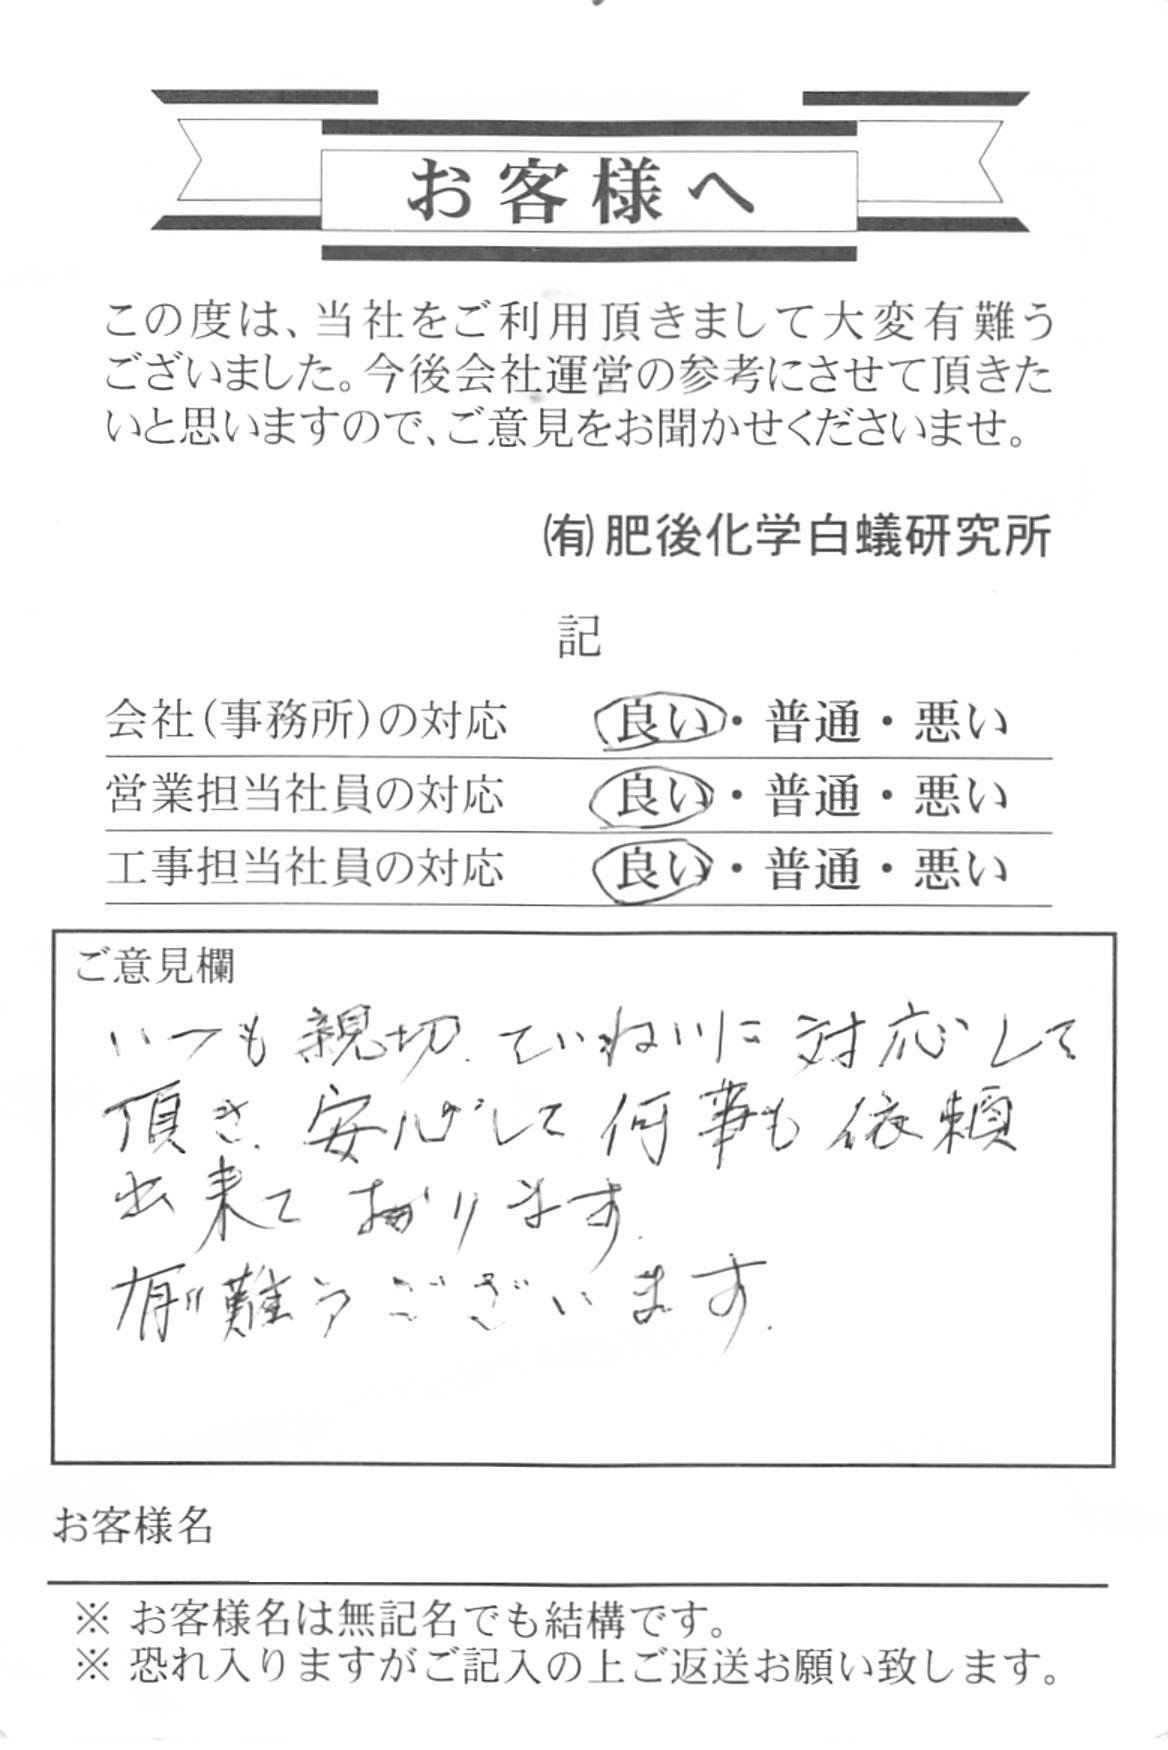 お客様へ
この度は、当社をご利用頂きまして大変有難う
ございました。今後会社運営の参考にさせて頂きた
いと思いますので、ご意見をお聞かせくださいませ。
㈲肥後化学白蟻研究所
記
会社(事務所)の対応 良い・普通・悪い
営業担当社員の対応 良い・普通・悪い
工事担当社員の対応 良い・普通・悪い
ご意見欄
いつも親切、ていねいに対応して
頂き、安心して何事も依頼
出来ております。
有難うございます。
お客様名
※ お客様名は無記名でも結構です。
※ 恐れ入りますがご記入の上ご返送お願い致します。